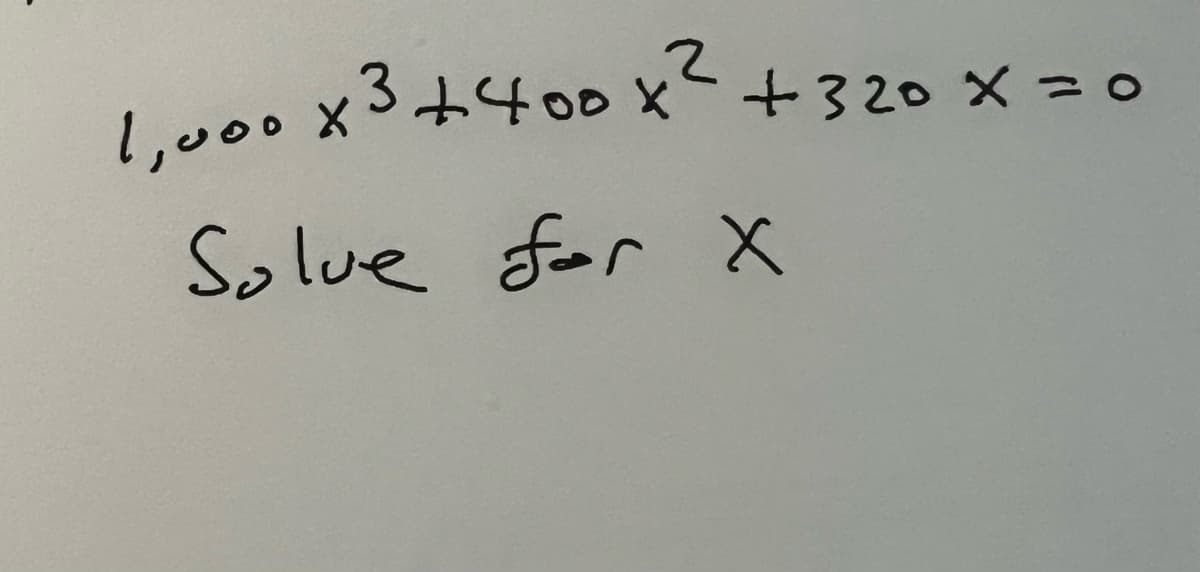 1,000 x³ + 400 x² + 320 x = 0
Solve for x